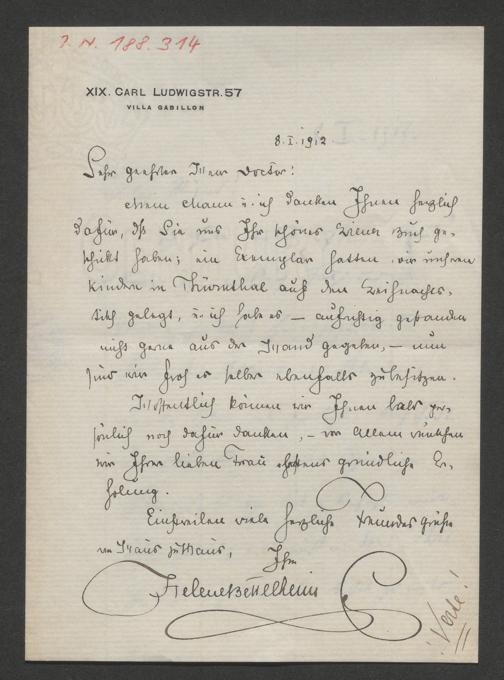 J. N. 188.314
XIX. CARL LUDWIGSTR. 57
VILLA GABILLON
8.I.1912
Sehr geehrter Herr Doctor!
Mein Mann u. ich danken Ihnen herzlich
dafür, dß Sie uns Ihr schönes Wiener Buch ge-
schickt haben; ein Exemplar hatten wir unseren
Kindern in Thürnthal auf den Weihnachts-
tisch gelegt, u. ich habe es — aufrichtig gestanden
nicht gerne aus der Hand gegeben, — nun
sind wir froh es selber ebenfalls zu besitzen.
Hoffentlich können wir Ihnen bald per-
sönlich noch dafür danken, — vor Allem wünschen
wir Ihrer lieben Frau gründliche Er-
holung.
Einstweilen viele herzliche Freundes grüße
von Haus zu Haus,
Ihre
Helene Bettelheim